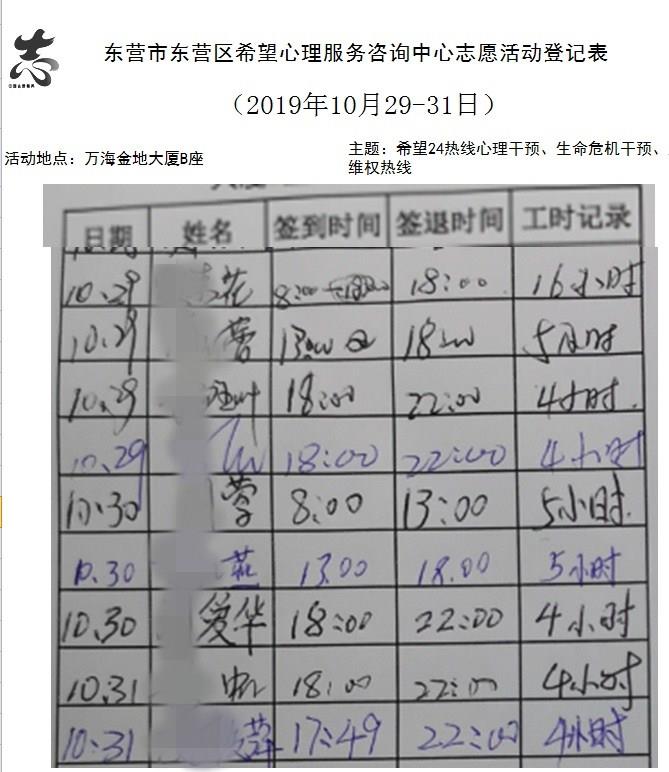 志
东营市东营区希望心理服务咨询中心志愿活动登记表
（2019年10月29-31日）
活动地点：万海金地大厦B座
主题：希望24热线心理干预、生命危机干预、
维权热线
日期 姓名 签到时间 签退时间 工时记录
10.29 花 8:00 18:00 16小时
10.29 蓉 13:00 18:00 5小时
10.29 18:00 22:00 4小时
10.29 18:00 22:00 4小时
10:30 蓉 8:00 13:00 5小时
10.30 燕 13.00 18.00 5小时
10.30 爱华 18:00 22:00 4小时
10.31 18:00 22:00 4小时
10:31 萍 17:49 22:00 4小时